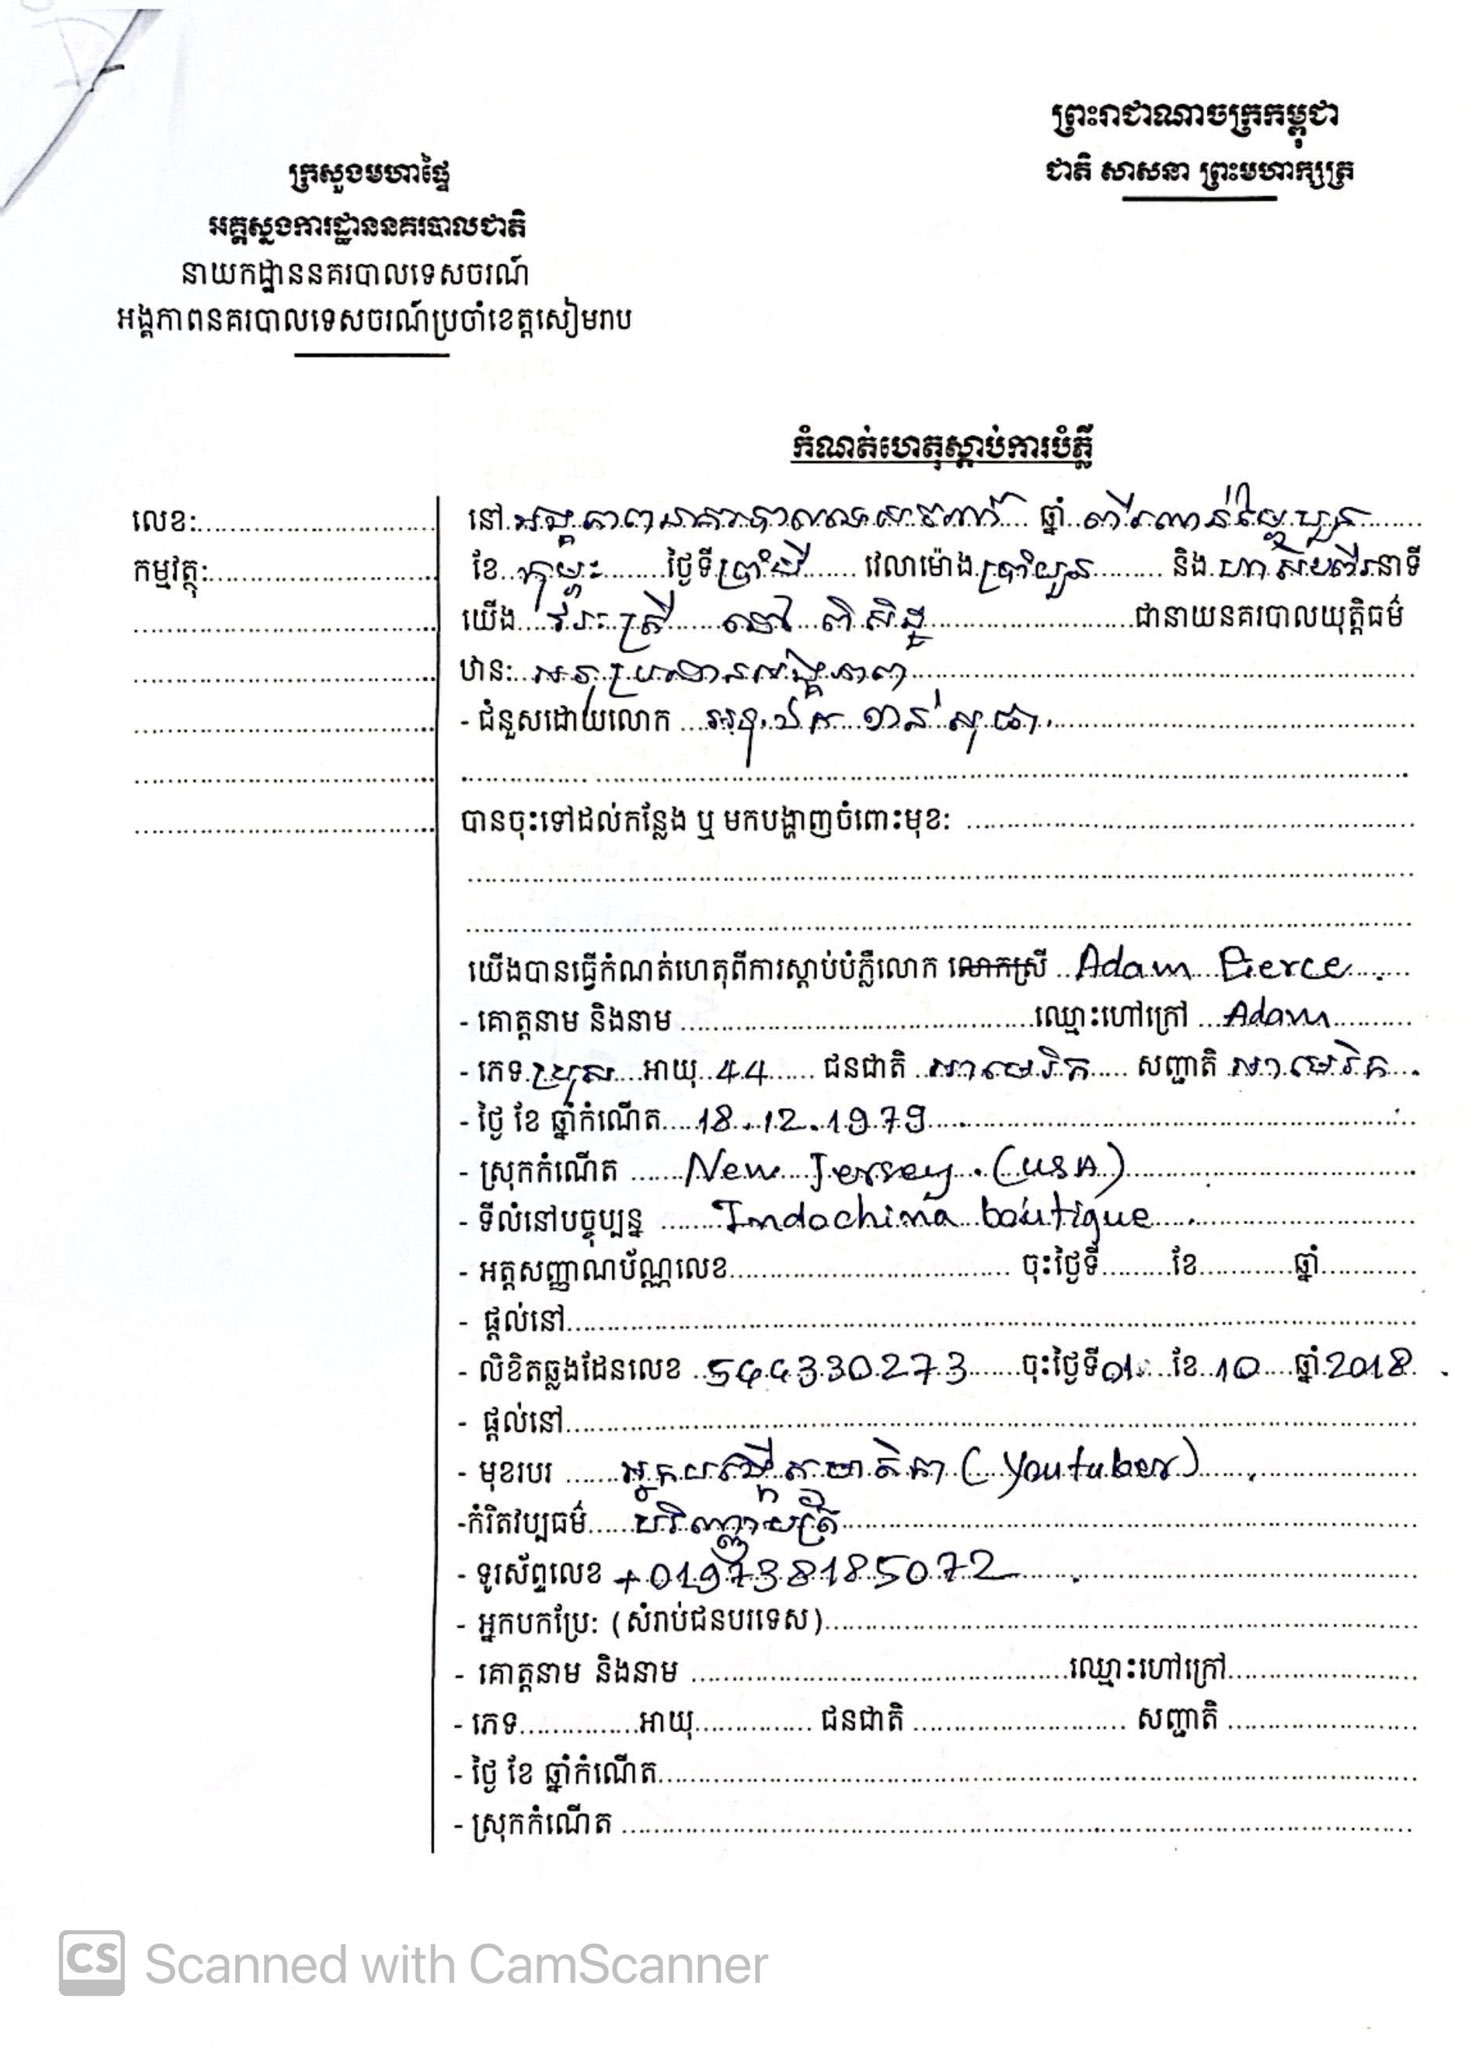 ព្រះរាជាណាចក្រកម្ពុជា
ជាតិ សាសនា ព្រះមហាក្សត្រ
ក្រសួងមហាផ្ទៃ
អគ្គស្នងការដ្ឋាននគរបាលជាតិ
នាយកដ្ឋាននគរបាលទេសចរណ៍
អង្គភាពនគរបាលទេសចរណ៍ប្រចាំខេត្តសៀមរាប
កំណត់ហេតុស្តាប់ការបំភ្លឺ
លេខ:
កម្មវត្ថុ:
នៅ អង្គភាពនគរបាលទេសចរណ៍ ឆ្នាំ ពីរពាន់ម្ភៃបួន
ខែ កុម្ភៈ ថ្ងៃទី ប្រាំបី វេលាម៉ោង ប្រាំបួន និង ហាសិបពីរ នាទី
យើង វរៈត្រី នៅ ពិសិដ្ឋ ជានាយនគរបាលយុត្តិធម៌
ឋានៈ អនុប្រធានអង្គភាព
- ជំនួសដោយលោក
បានចុះទៅដល់កន្លែង ឬ មកបង្ហាញចំពោះមុខ:
យើងបានធ្វើកំណត់ហេតុពីការស្តាប់បំភ្លឺលោក លោកស្រី Adam Pierce
- គោត្តនាម និងនាម ឈ្មោះហៅក្រៅ Adam
- ភេទ ប្រុស អាយុ 44 ជនជាតិ អាមេរិក សញ្ជាតិ អាមេរិក
- ថ្ងៃ ខែ ឆ្នាំកំណើត 18.12.1979
- ស្រុកកំណើត New Jersey (USA)
- ទីលំនៅបច្ចុប្បន្ន Indochina boutique
- អត្តសញ្ញាណប័ណ្ណលេខ ចុះថ្ងៃទី ខែ ឆ្នាំ
- ផ្តល់នៅ
- លិខិតឆ្លងដែនលេខ 544330273 ចុះថ្ងៃទី 01 ខែ 10 ឆ្នាំ 2018
- ផ្តល់នៅ
- មុខរបរ អ្នកបង្កើតមាតិកា (Youtuber)
-កំរិតវប្បធម៌ បរិញ្ញាបត្រ
- ទូរស័ព្ទលេខ +019738185072
- អ្នកបកប្រែ: (សំរាប់ជនបរទេស)
- គោត្តនាម និងនាម ឈ្មោះហៅក្រៅ
- ភេទ អាយុ ជនជាតិ សញ្ជាតិ
- ថ្ងៃ ខែ ឆ្នាំកំណើត
- ស្រុកកំណើត
CS Scanned with CamScanner